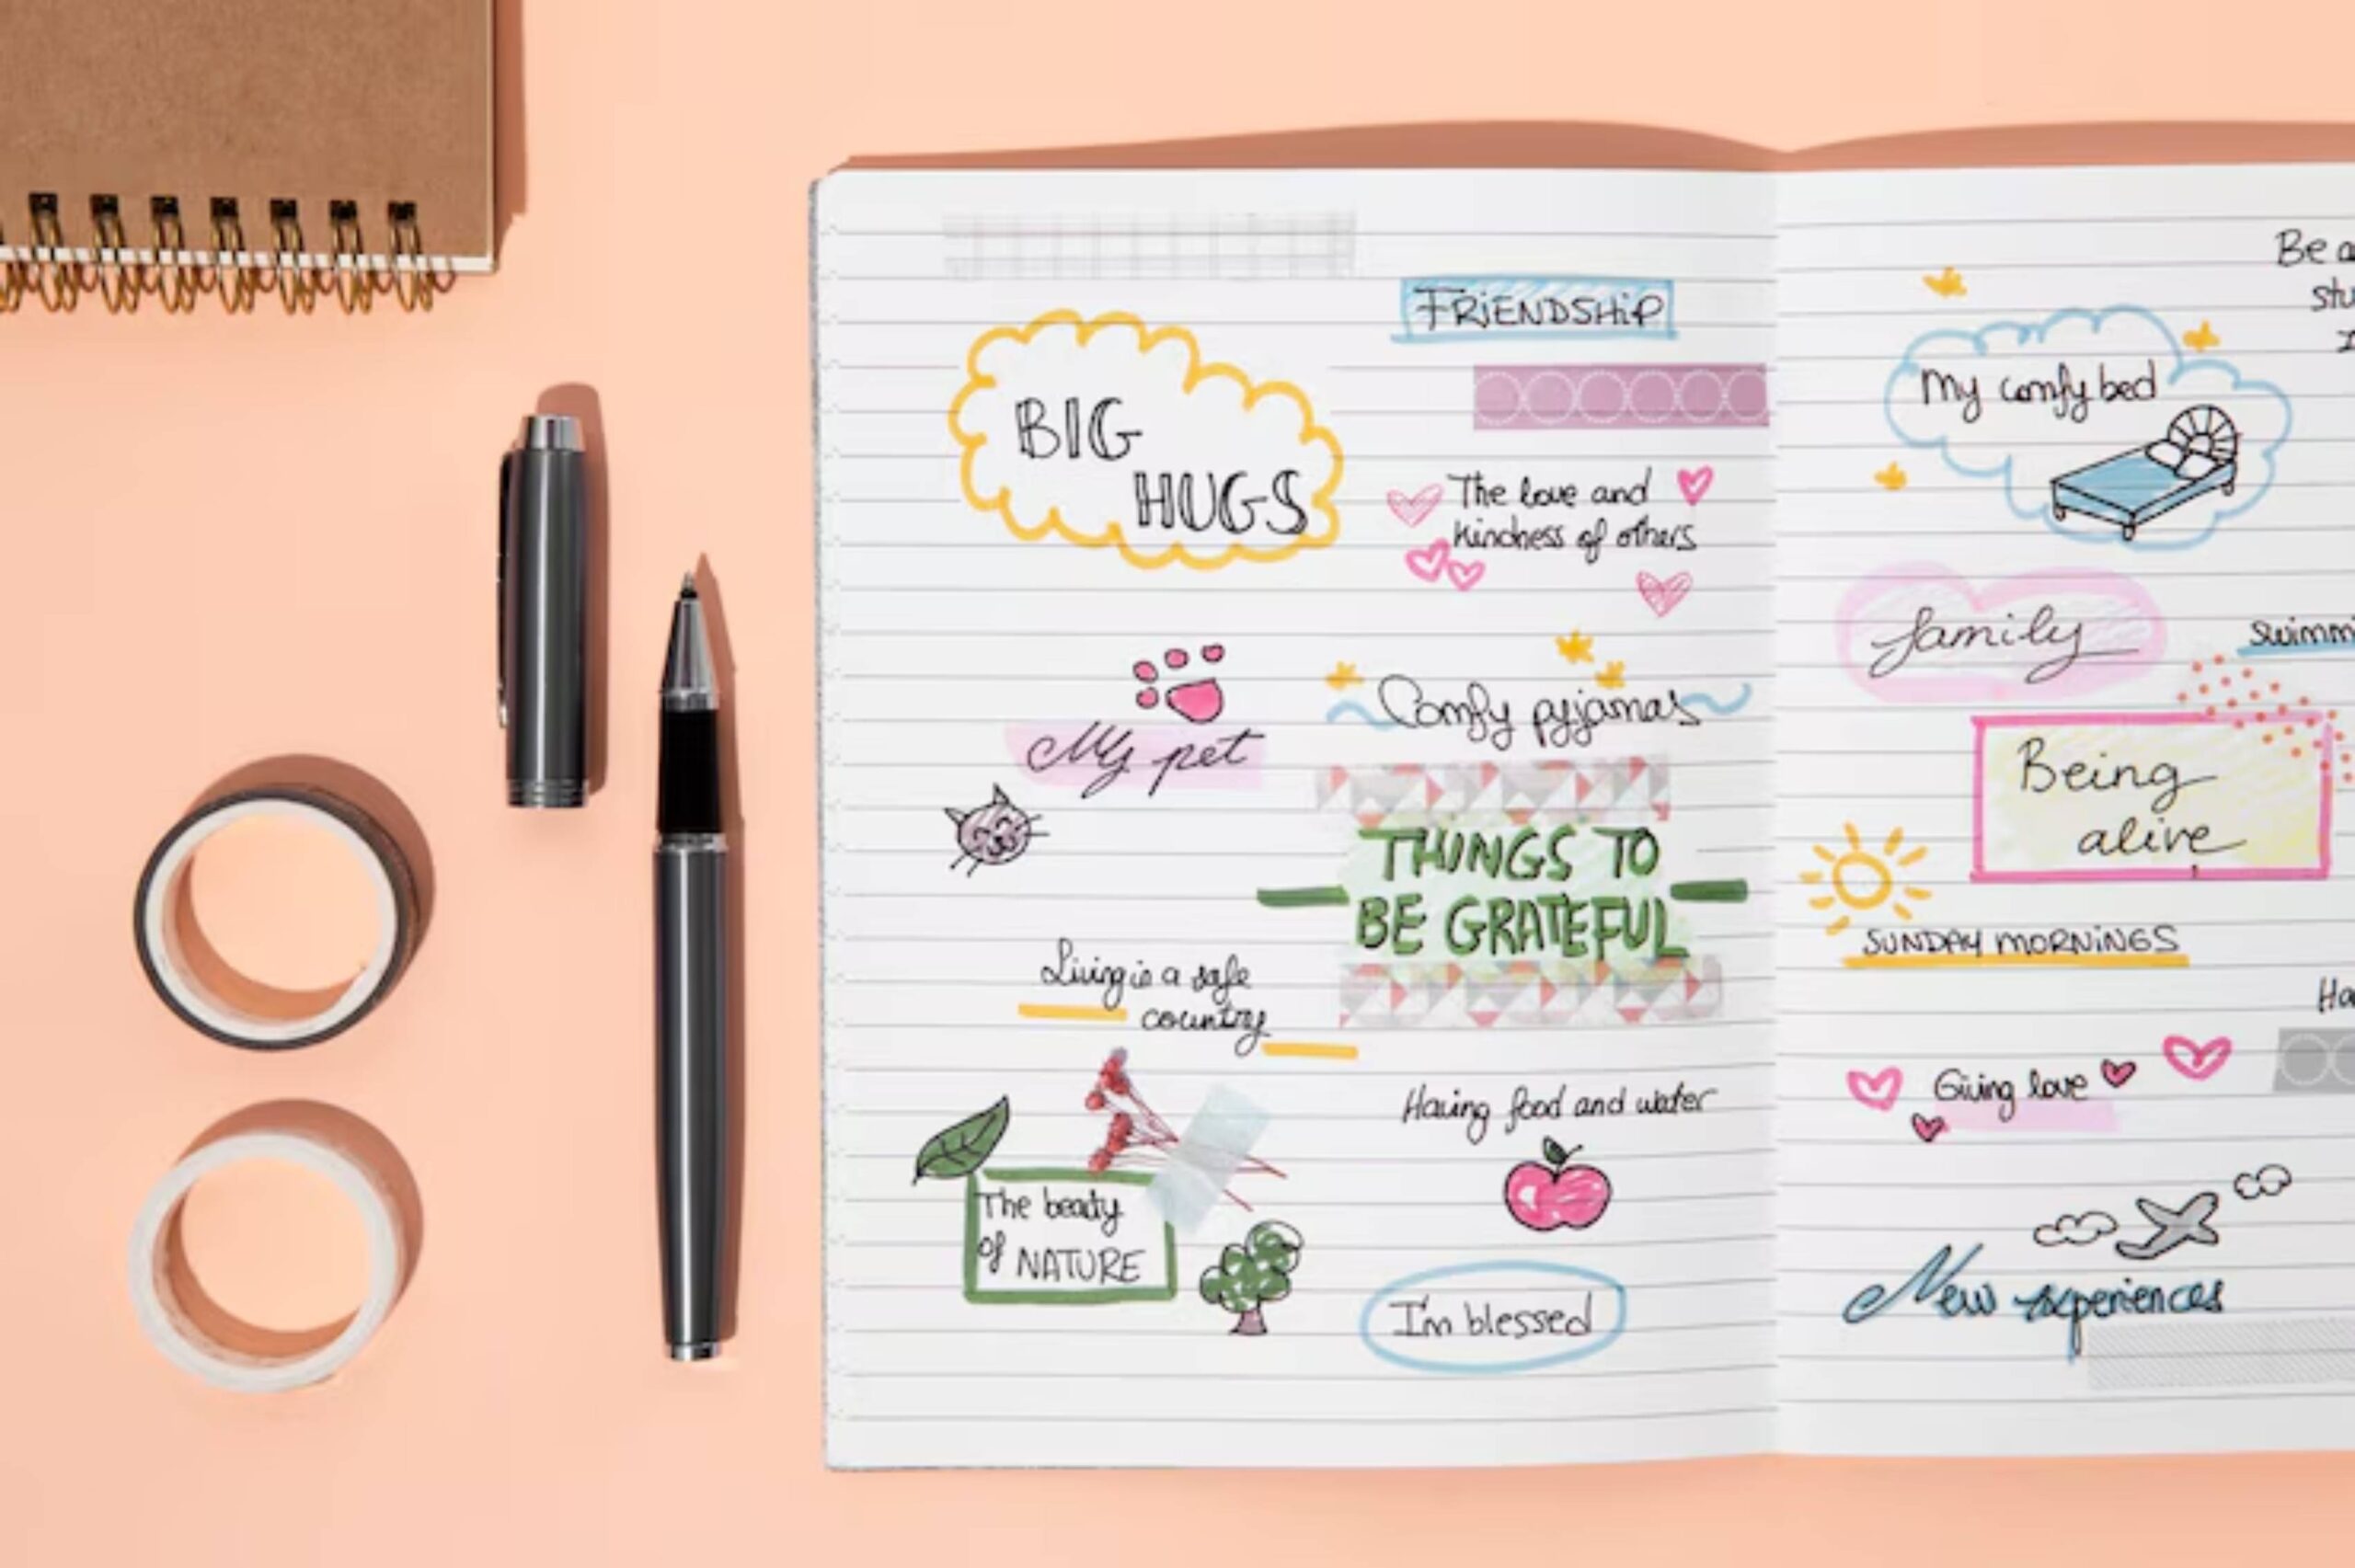 FRIENDSHIP
BIG
HUGS
The love and
kindness of others
My pet
Comfy pyjamas
THINGS TO
BE GRATEFUL
Living is a safe
country
Having food and water
The beauty
of NATURE
I'm blessed
Be a
stu
My comfy bed
family
swimmi
Being
alive
SUNDAY MORNINGS
Ha
Giving love
New experiences